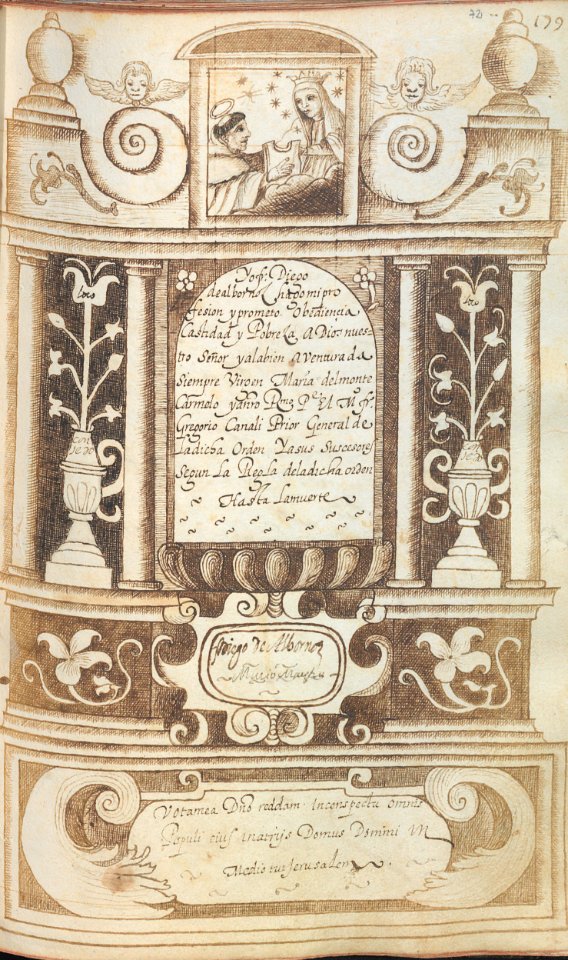 72
179
Yo fr. Diego
de albornoz hago mi pro
fesion y prometo Obediencia
Castidad y Pobreza A Dios nues-
tro Señor y a la bien A venturada
Siempre Virgen Maria del monte
Carmelo y a nro Rmo Pe El M fr.
Gregorio Canali Prior General de
la dicha Orden Y a sus Suscesores
Segun La Regla de la dicha orden
Hasta La muerte
fr Diego De Albornoz
Vota mea Dno reddam In conspectu omnis
Populi eius in atrijs Domus Domini in
Medio tui Jerusalem